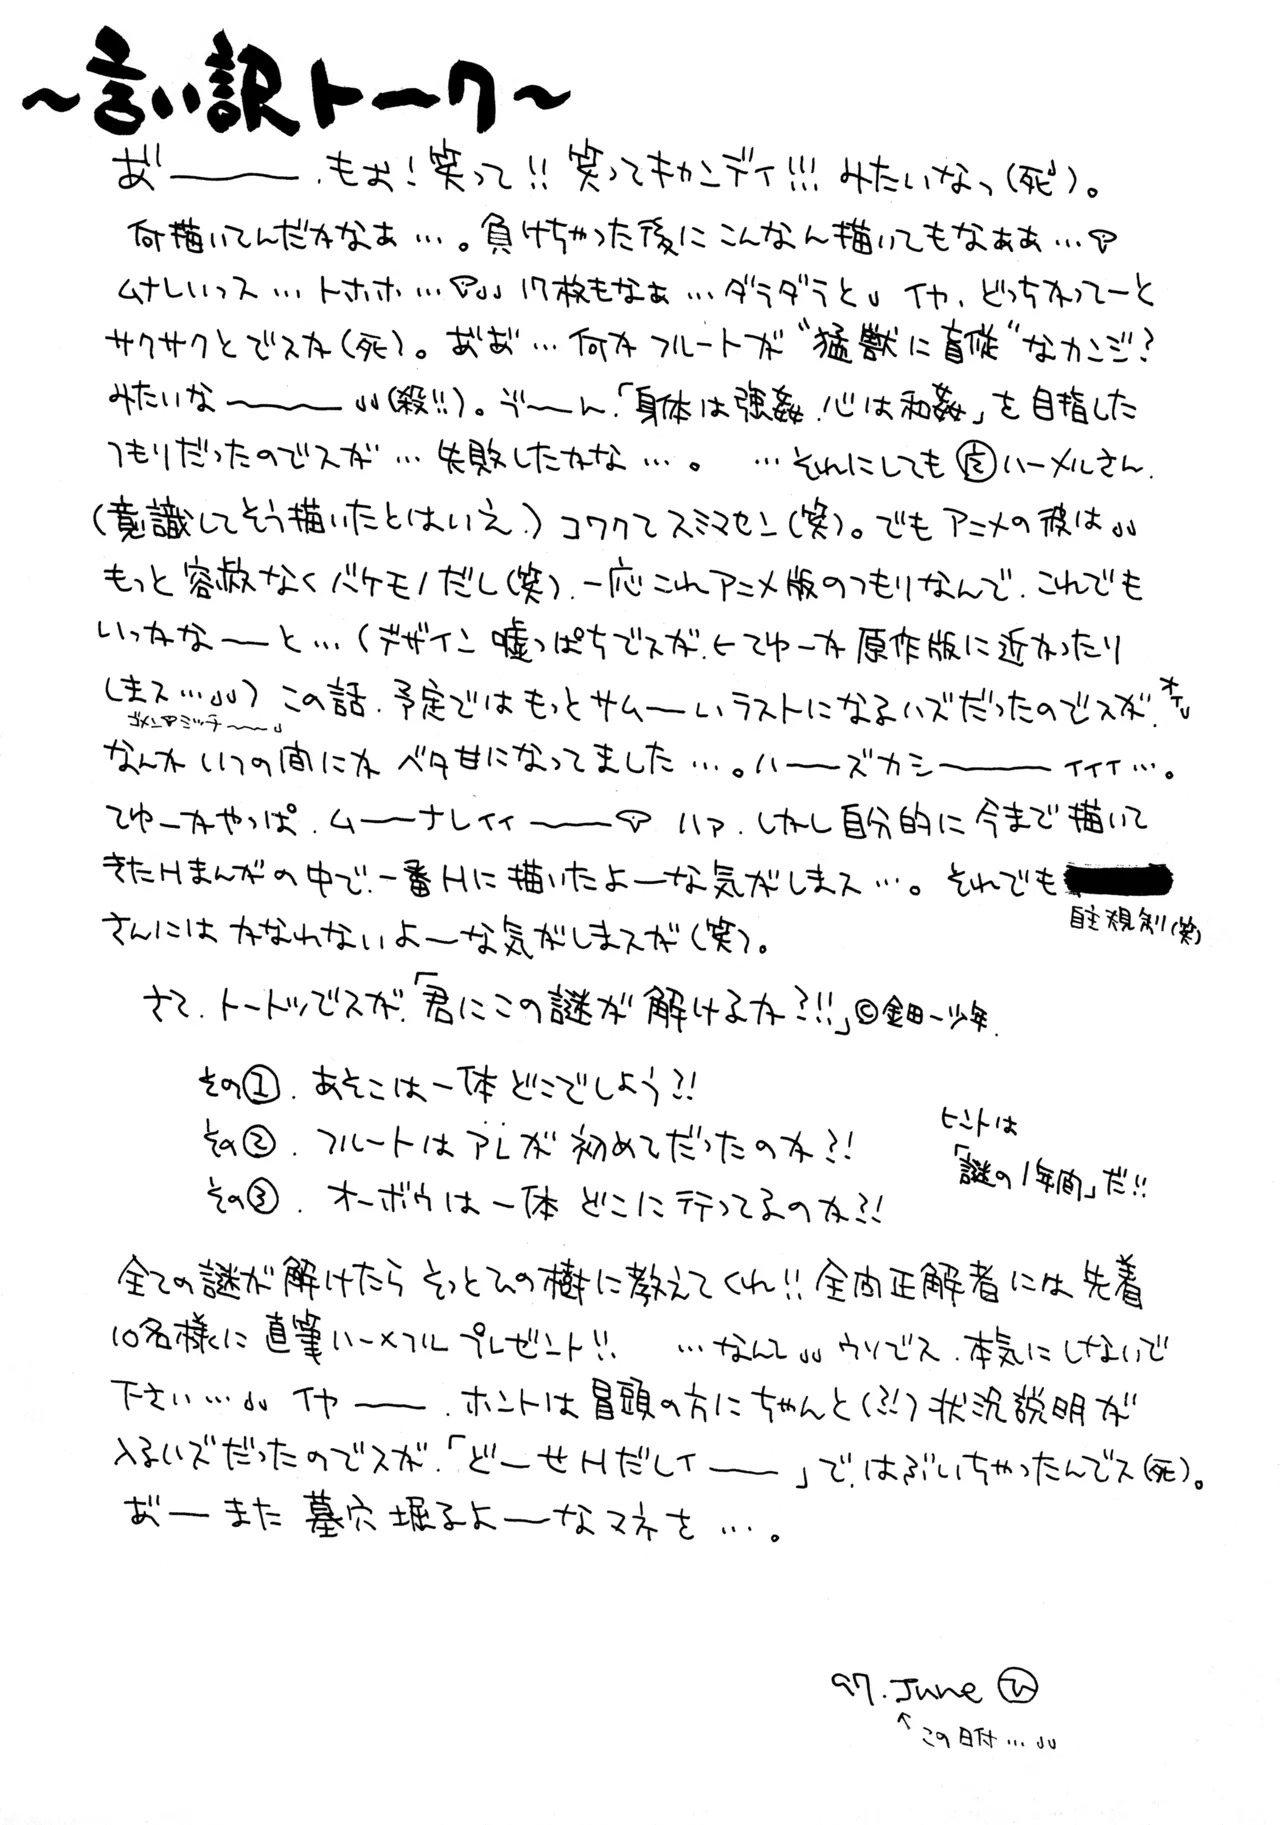 ～言い訳トーク～
あ゛――――、もぉ！笑って!! 笑ってキャンディ!!! みたいなっ(死)。
何描いてんだかなぁ…。負けちゃった後にこんなん描いてもなぁぁ…
ムナしいっス…トホホ… 17枚もなぁ…ダラダラと イヤ、どっちかってーと
サクサクとでスか(死)。あ゛あ゛…何かフルートが“猛獣に盲従”なカンジ?
みたいな――――(殺!!)。う゛――ん、「身体は強姦、心は和姦」を目指した
つもりだったのでスが…失敗したかな…。 …それにしても ハーメルさん、
(意識してそう描いたとはいえ、) コワクてスミマセン(笑)。でもアニメの彼は
もっと容赦なくバケモノだし(笑)、一応これアニメ版のつもりなんで、これでも
いっかな――と…(デザイン嘘っぱちでスが、ヒてゆーか原作版に近かったり
しまス…) この話、予定ではもっとサム――いラストになるハズだったのでスが、
なんかいつの間にかベタ甘になってました…。ハ――ズカシ――――ィィィ…。
てゆーかやっぱ、ム――ナしィィ―― ハァ、しかし自分的に今まで描いて
きたHまんがの中で、一番Hに描いたよーな気がしまス…。それでも
自主規制(笑)
さんにはかなわないよーな気がしまスが(笑)。
さて、トートツでスが、「君にこの謎が解けるか?!!」©金田一少年、
その①、あそこは一体どこでしょう?!
その②、フルートはアレが初めてだったのか?!
その③、オーボウは一体どこに行ってるのか?!
ヒントは
「謎の1年間」だ!!
全ての謎が解けたらそっとひの樹に教えてくれ!! 全問正解者には先着
10名様に直筆ハーメフルプレゼント!! …なんて ウソでス、本気にしないで
下さい… イヤ――、ホントは冒頭の方にちゃんと(?!)状況説明が
入るハズだったのでスが、「どーせHだしィ――」で、はぶいちゃったんでス(死)。
あ゛――また墓穴堀るよーなマネを…。
97.June ひ
↑この日付…